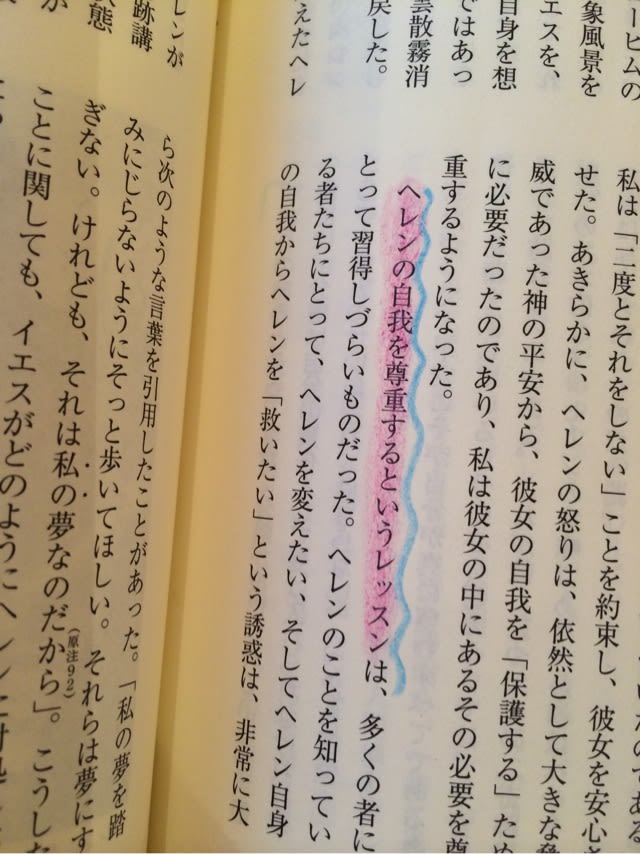 ームの
象風景を
エスを、
自身を想
ではあっ
雲散霧消
戻した。
えたヘレ
私は「二度とそれをしない」ことを約束し、彼女を安心さ
せた。あきらかに、ヘレンの怒りは、依然として大きな脅
威であった神の平安から、彼女の自我を「保護する」ため
に必要だったのであり、私は彼女の中にあるその必要を尊
重するようになった。
ヘレンの自我を尊重するというレッスンは、多くの者に
とって習得しづらいものだった。ヘレンのことを知ってい
る者たちにとって、ヘレンを変えたい、そしてヘレン自身
の自我からヘレンを「救いたい」という誘惑は、非常に大
レンが
跡講
態
ら次のような言葉を引用したことがあった。「私の夢を踏
みにじらないようにそっと歩いてほしい。それらは夢にす
ぎない。けれども、それは私の夢なのだから」(原注92)。こうした
ことに関しても、イエスがどのようにヘレンに対